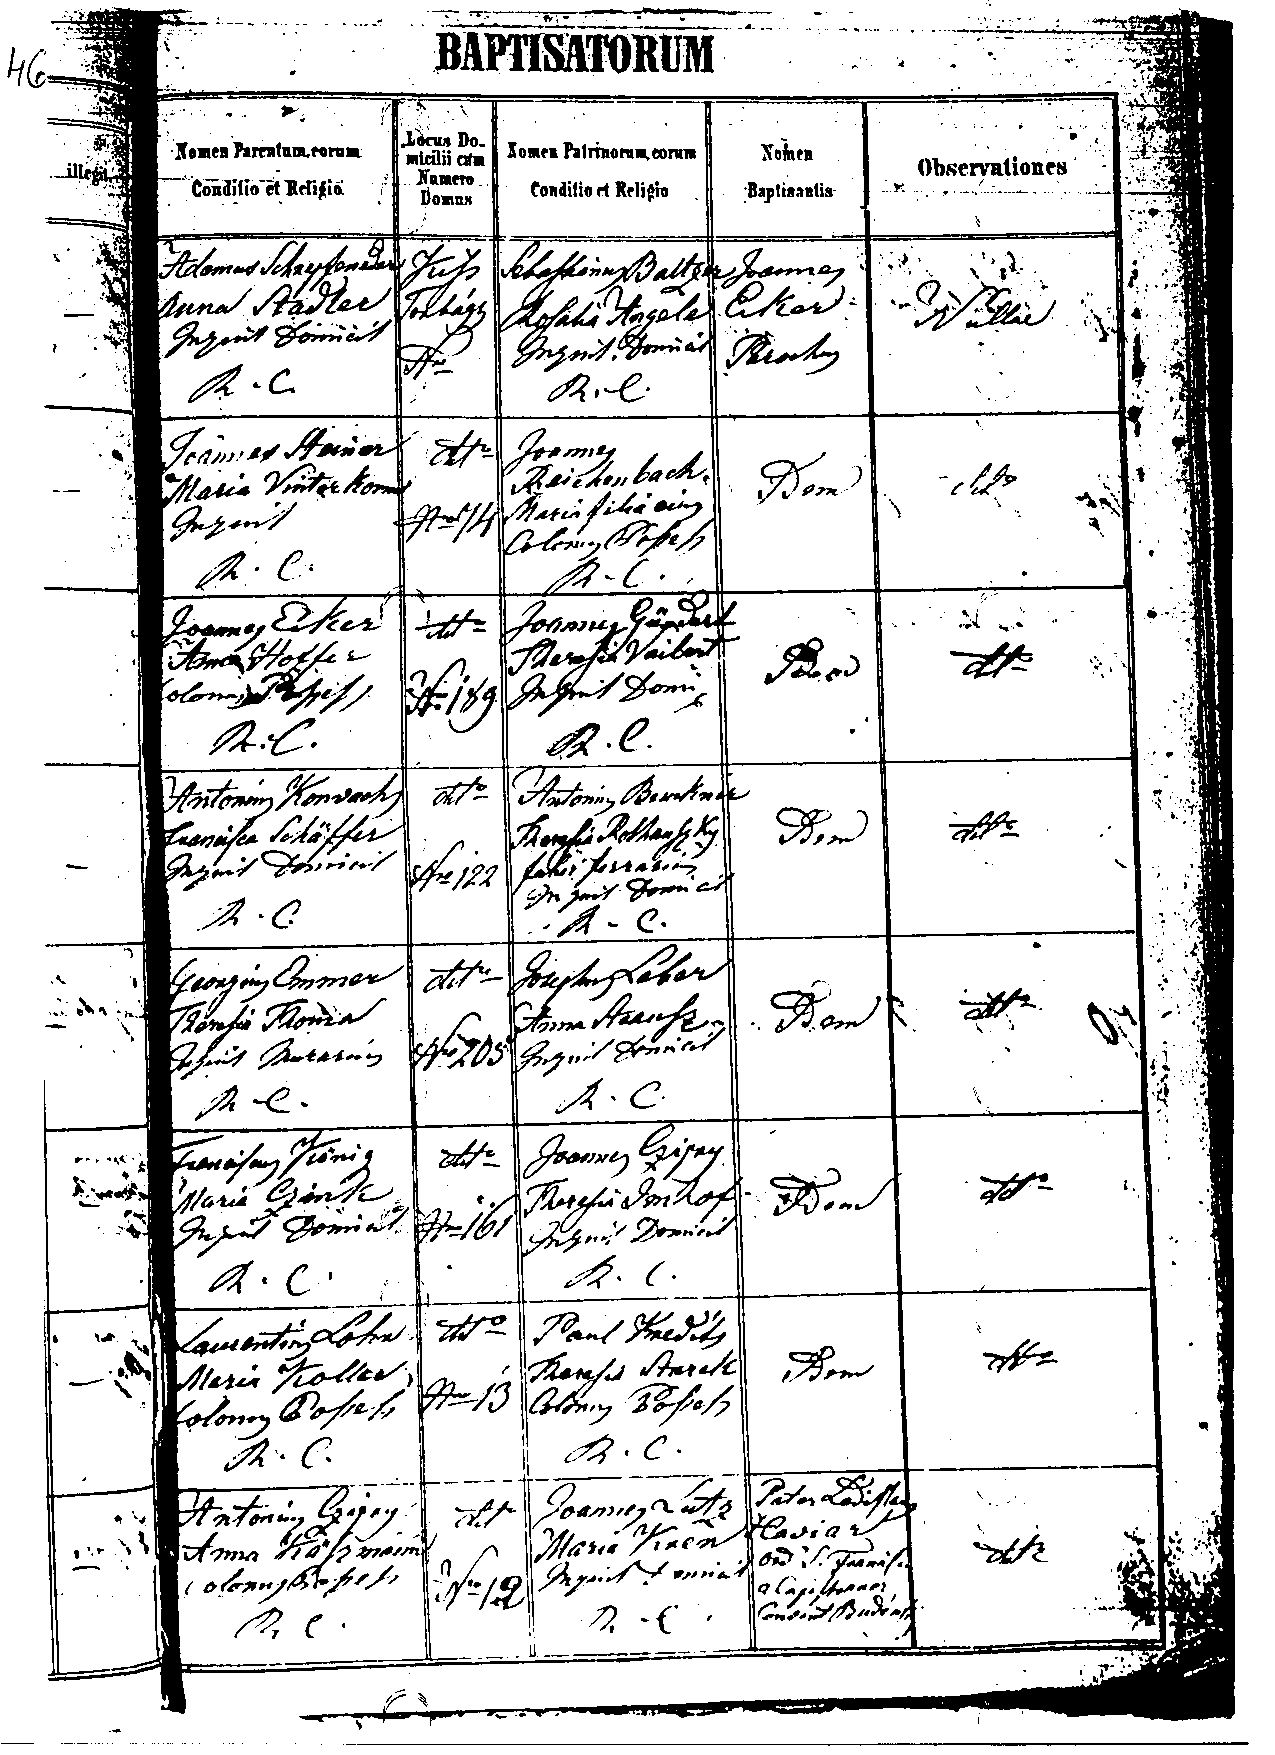 46
BAPTISATORUM
illegit.
Nomen Parentum, eorum
Conditio et Religio
Locus Do-
micilii cum
Numero
Domus
Nomen Patrinorum, eorum
Conditio et Religio
Nomen
Baptisantis
Observationes
Adamus
Anna Stadler
Inquil Domicil
R. C.
Torbágy
Nro
Sebastianus Baltzer
Rosalia Angela
Inquil. Domicil
R. C.
Joannes
Eker
Parochus
Nullae
Joannes Steiner
Maria
Inquil
R. C.
dtto
Nro 14
Joannes
Reichenbach
Maria filia eius
Colonus Possess
R. C.
Dem
dtto
Joannes Eker
Anna Hoffer
Colonus Possess
R. C.
dtto
Nro 189
Joannes
Theresia Vaibert
Inquil Domi
R. C.
Dem
dtto
Antonius
Francisca Schäffer
Inquil Domicil
R. C.
dtto
Nro 122
Antonius
Theresia
faber ferrarius
Inquil Domicil
R. C.
Dem
dtto
Georgius Emmer
Theresia
Inquil Murarius
R. C.
dtto
Nro 205
Josephus Leber
Anna Strausz
Inquil Domicil
R. C.
Dem
dtto
Franciscus König
Maria
Inquil Domicil
R. C.
dtto
Nro 161
Joannes Czigay
Theresia Imhof
Inquil Domicil
R. C.
Dem
dtto
Laurentius Lohn
Maria Koller
Colonus Possess
R. C.
dtto
Nro 13
Paul
Theresia Starck
Colonus Possess
R. C.
Dem
dtto
Antonius Czigay
Anna
Colonus Possess
R. C.
dtto
Nro 12
Joannes Lutz
Maria
Inquil Domicil
R. C.
Pater Ladislaus
Caviar
ord S. Francisci
a Capistrano
Convent Budensis
dtto